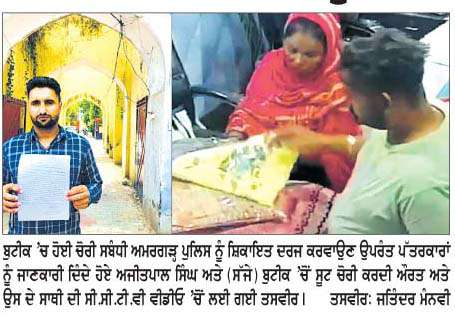 ਬੁਟੀਕ ’ਚ ਹੋਈ ਚੋਰੀ ਸਬੰਧੀ ਅਮਰਗੜ੍ਹ ਪੁਲਿਸ ਨੂੰ ਸ਼ਿਕਾਇਤ ਦਰਜ ਕਰਵਾਉਣ ਉਪਰੰਤ ਪੱਤਰਕਾਰਾਂ
ਨੂੰ ਜਾਣਕਾਰੀ ਦਿੰਦੇ ਹੋਏ ਅਜੀਤਪਾਲ ਸਿੰਘ ਅਤੇ (ਸੱਜੇ) ਬੁਟੀਕ ’ਚੋਂ ਸੂਟ ਚੋਰੀ ਕਰਦੀ ਔਰਤ ਅਤੇ
ਉਸ ਦੇ ਸਾਥੀ ਦੀ ਸੀ.ਸੀ.ਟੀ.ਵੀ ਵੀਡੀਓ ’ਚੋਂ ਲਈ ਗਈ ਤਸਵੀਰ। ਤਸਵੀਰ: ਜਤਿੰਦਰ ਮੰਨਵੀ